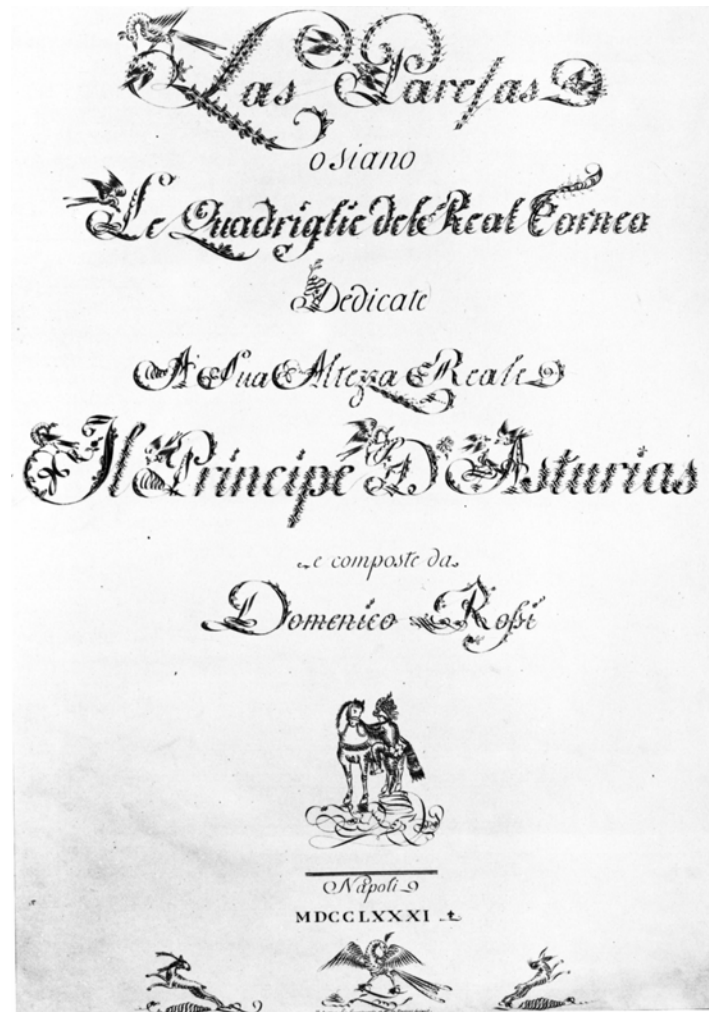 Las Parejas
o siano
Le Quadriglie del Real Tornea
Dedicate
A Sua Altezza Reale
Il Principe D'Asturias
e composte da
Domenico Roſsi
Napoli
MDCCLXXXI